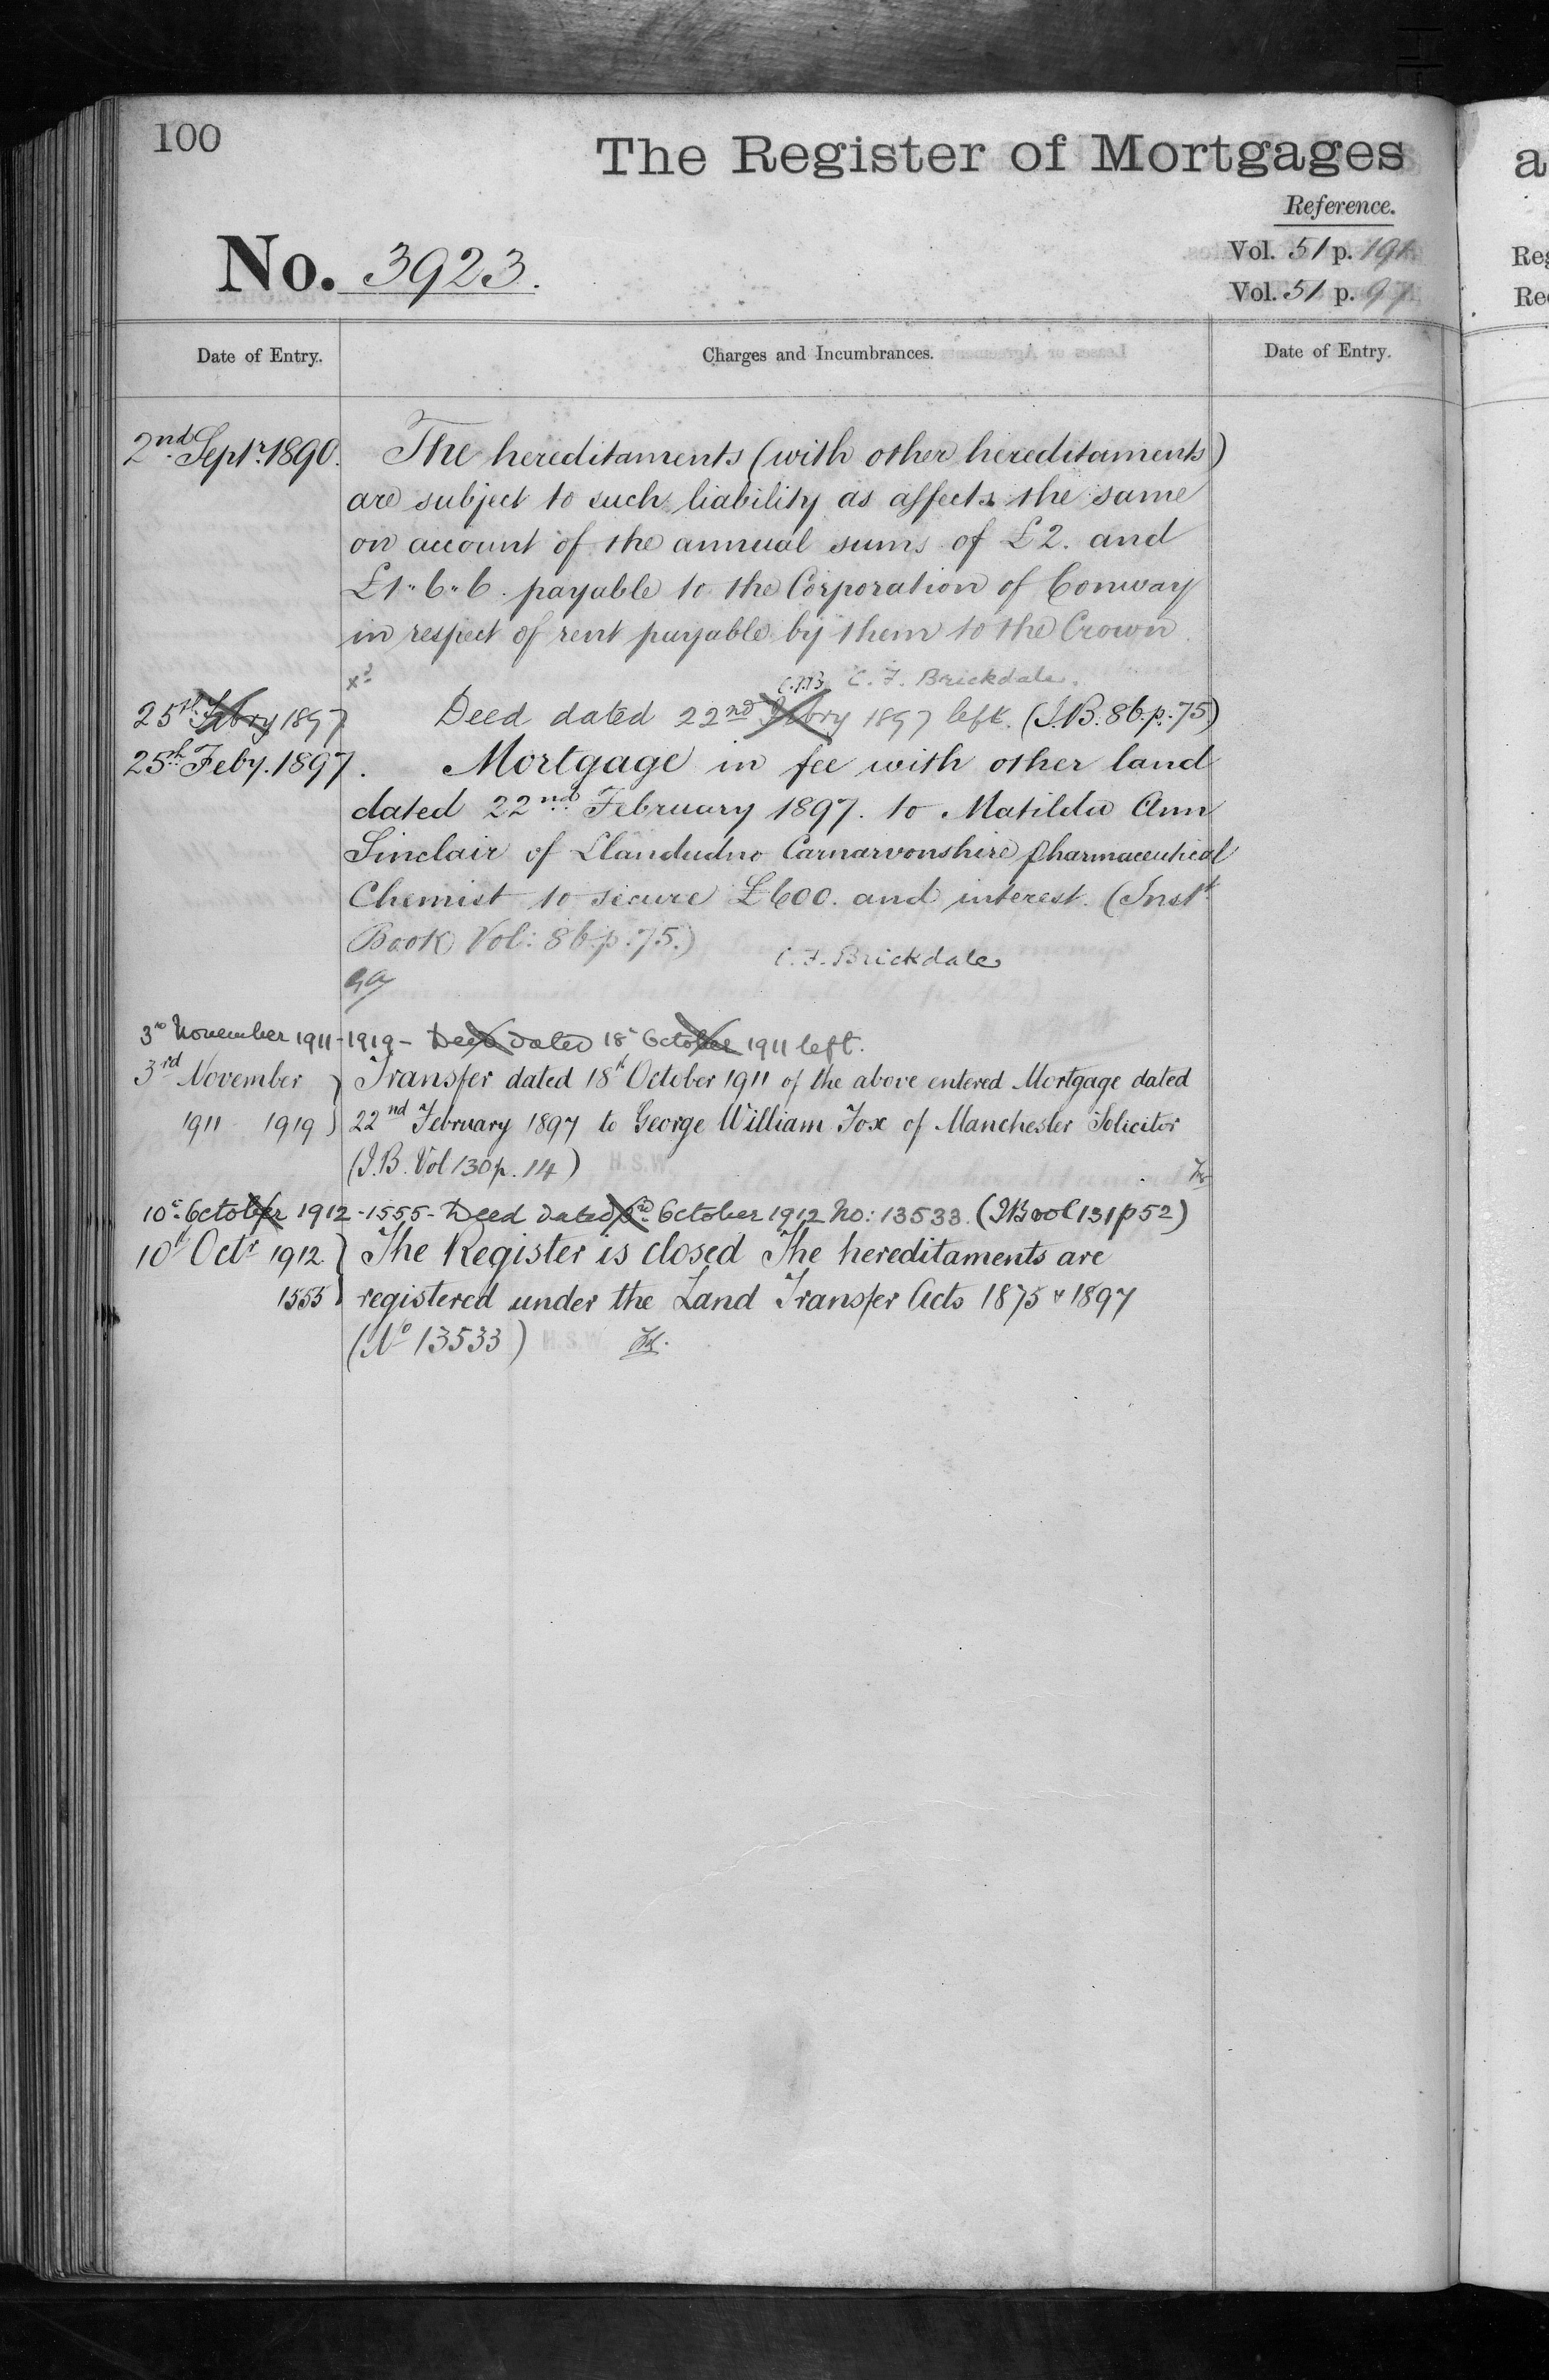 100
The Register of Mortgages
Reference.
No. 3923.
Vol. 51 p. 191
Vol. 51 p. 97
Date of Entry.
Charges and Incumbrances.
Date of Entry.
2nd Septr. 1890. The hereditaments (with other hereditaments)
are subject to such liability as affects the same
on account of the annual sums of £2. and
£1"6"6. payable to the Corporation of Conway
in respect of rent payable by them to the Crown
C. F. Brickdale.
25th Febry 1897 Deed dated 22nd Febry 1897 left. (I.B. 86.p.75)
25th Feby. 1897. Mortgage in fee with other land
dated 22nd February 1897. to Matilda Ann
Sinclair of Llandudno Carnarvonshire Pharmaceutical
Chemist to secure £600. and interest. (Inst.
Book Vol: 86.p.75.)
C. F. Brickdale
3rd November 1911-1919- Deed dated 18th October 1911 left.
3rd November } Transfer dated 18th October 1911 of the above entered Mortgage dated
1911 1919 } 22nd February 1897 to George William Fox of Manchester Solicitor
(I.B. Vol 130 p. 14) H.S.W.
10th October 1912-1555- Deed dated 3rd October 1912 No: 13533. (IB vol 131 p 52)
10th Octr 1912. } The Register is closed The hereditaments are
1555 } registered under the Land Transfer Acts 1875 & 1897
(No 13533) H.S.W.
a
Reg
Re